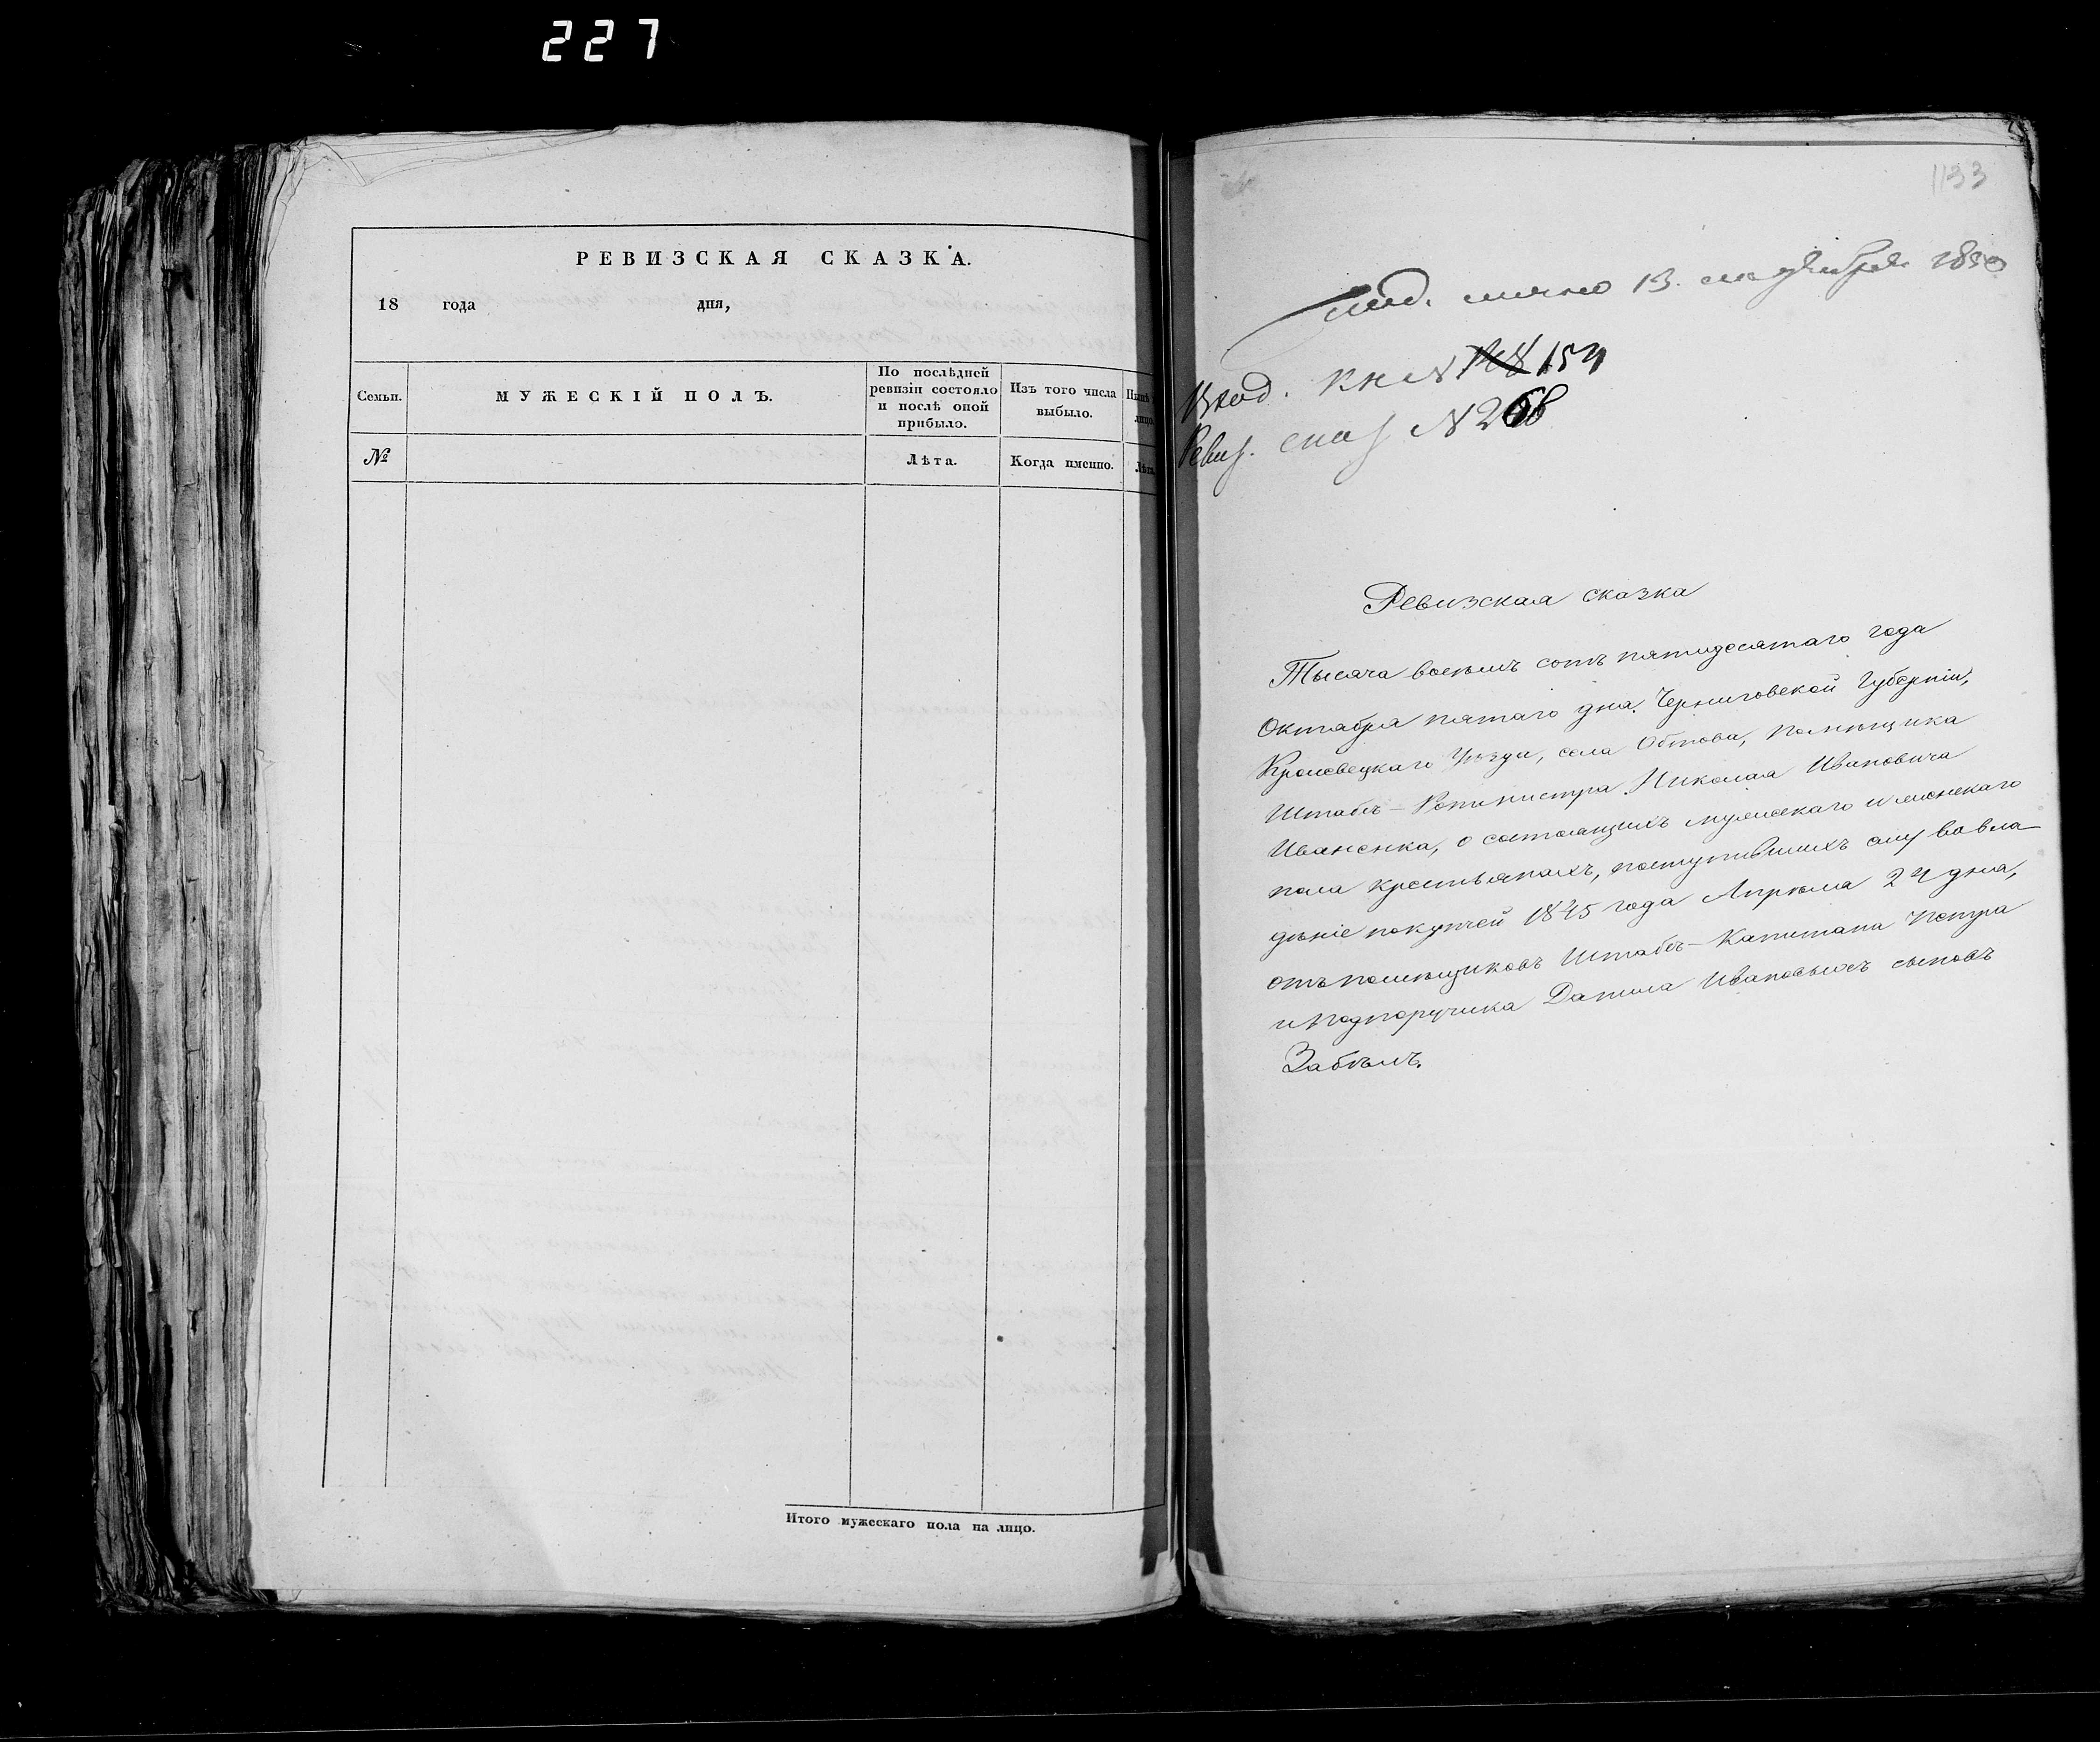 227
РЕВИЗСКАЯ СКАЗКА.
18 года дня,
Семьи.
МУЖЕСКІЙ ПОЛЪ.
По послѣдней
ревизіи состояло
и послѣ оной
прибыло.
Изъ того числа
выбыло.
№
Лѣта.
Когда именно.
Лѣта
Итого мужескаго пола на лицо.
1133
лично 13. 1850
Вход. кн N 154
Ревиз. сказ N 266
Ревизская сказка
Тысяча восемь сотъ пятидесятаго года
Октября пятаго дня. Черниговской Губерніи,
Кролевецкаго Уѣзда, села Обтова, Помѣщика
Штабъ-Ротмистра Николая Ивановича
Иваненка, о состоящихъ мужескаго и женскаго
пола крестьянахъ, поступившихъ ему во вла-
дѣніе покупкей 1845 года Апрѣля 24 дня,
отъ помѣщиковъ Штабсъ-Капитана Петра
и Подпоручика Данила Ивановыхъ сыновъ